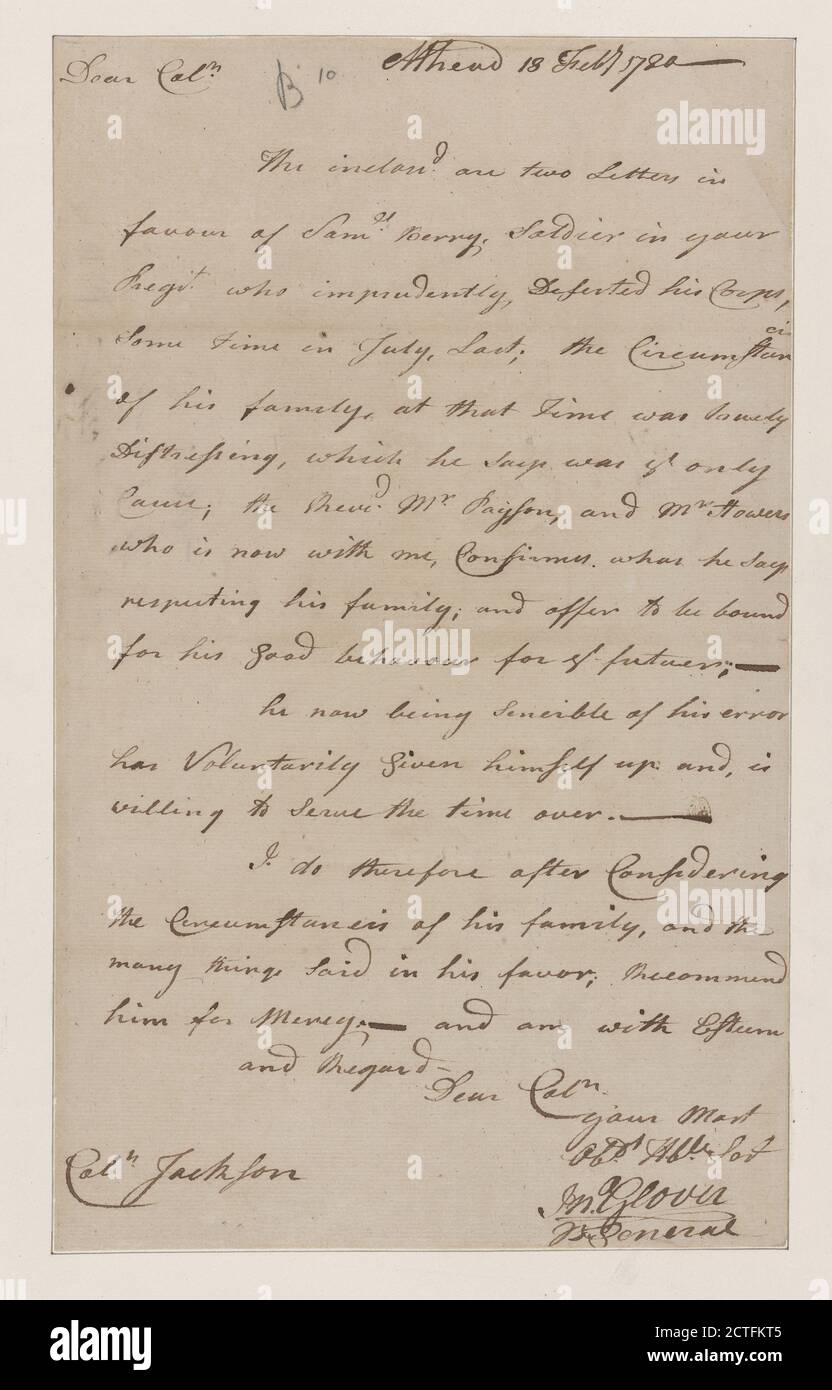 Dear Coln
Mhead 18 Feby 1780
B 10
The inclosd are two Letters in
favour of Saml Berry, Soldier in your
Regt who imprudently, Deserted his Corps,
Some time in July, Last; the Circumstancis
of his family, at that time was truely
Distressing, which he says was ye only
Cause; the Revd Mr Payson, and Mr Howers
who is now with me, Confirmes what he says
respecting his family; and offer to be bound
for his good behavour for ye future;—
he now being Sencible of his error
has Voluntarily given himself up and, is
willing to Serve the time over.—
I do therefore after Considering
the Circumstancis of his family, and the
many things Said in his favor; Recommend
him for Mercy,— and am with Esteem
and Regard—
Dear Coln
your Most
Obdt Hble Sert
Jno Glover
B. General
Coln Jackson
alamy
Image ID: 2CTFKT5
www.alamy.com